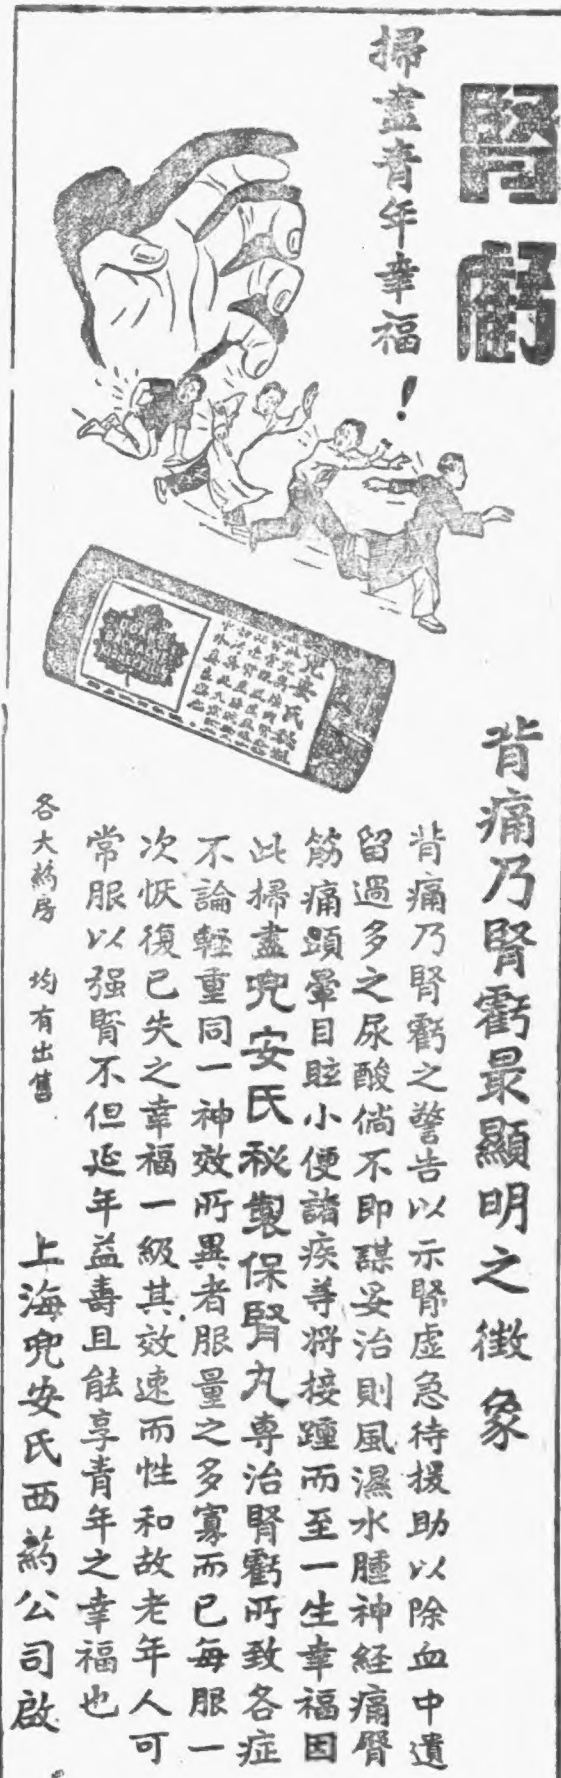 腎虧
掃盡青年幸福！
背痛乃腎虧最顯明之徵象
背痛乃腎虧之警告以示腎虛急待援助以除血中遺
留過多之尿酸倘不即謀妥治則風濕水腫神経痛腎
筋痛頭暈目眩小便諸疾等將接踵而至一生幸福因
此掃盡兜安氏秘製保腎丸專治腎虧所致各症
不論輕重同一神效所異者服量之多寡而已每服一
次恢復已失之幸福一級其效速而性和故老年人可
常服以强腎不但延年益壽且能享青年之幸福也
各大葯房 均有出售
上海兜安氏西葯公司啟
兜安氏秘製